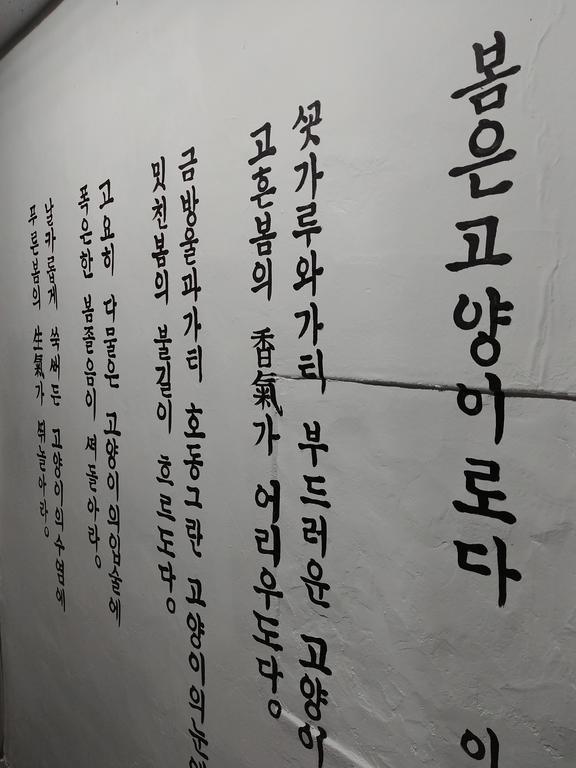 봄은고양이로다
이
ᄭᅩᆺ가루와가티 부드러운 고양이
고흔봄의 香氣가 어리우도다。
금방울과가티 호동그란 고양이의눈에
밋친봄의 불길이 흐르도다。
고요히 다물은 고양이의입술에
폭은한 봄졸음이 ᄯᅥ돌아라。
날카롭게 쑥ᄲᅥ든 고양이의수염에
푸른봄의 生氣가 ᄯᅱ놀아라。